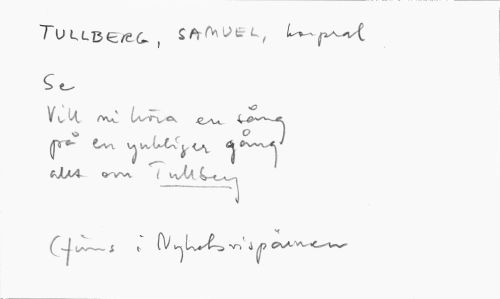 TULLBERG, SAMUEL, korpral
Se
Vill ni höra en sång
på en ynkliger gång
allt om Tullberg
(finns i Nyhetsvispärmen